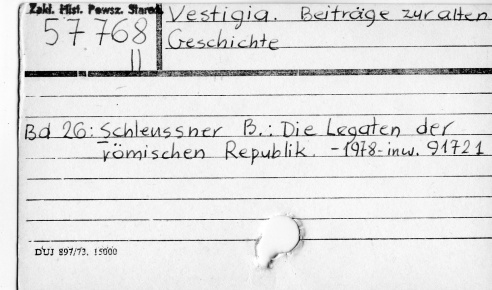 Zakł. Hist. Powsz. Staroż.
57.768
II
Vestigia. Beiträge zur alten
Geschichte
Bd 26: Schleussner B.: Die Legaten der
römischen Republik. - 1978 - inw. 91721
DUJ 897/73. 15000